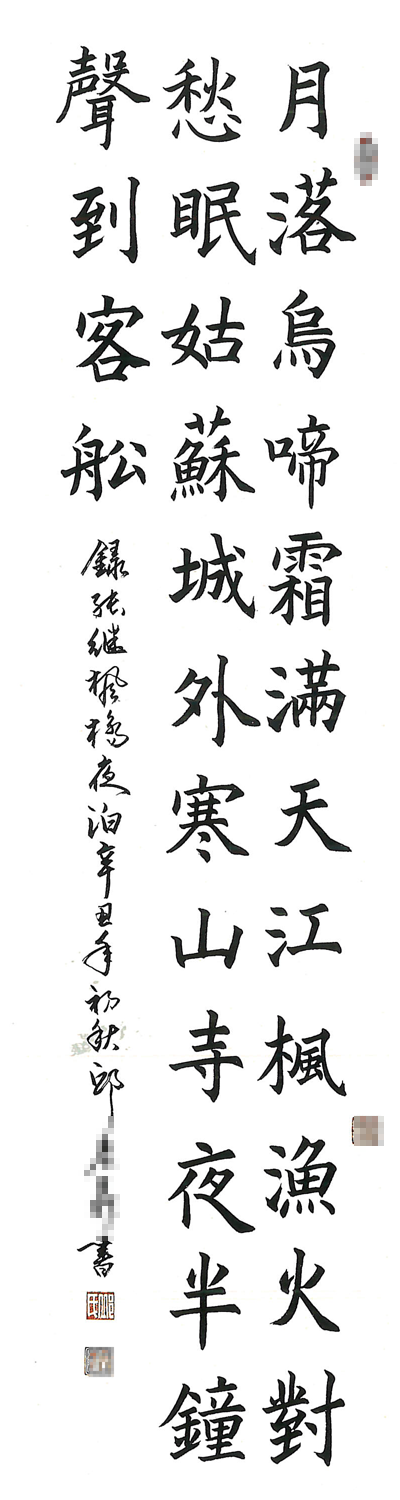 月落烏啼霜滿天江楓漁火對
愁眠姑蘇城外寒山寺夜半鐘
聲到客舩
録张继楓橋夜泊辛丑年初秋邱
書